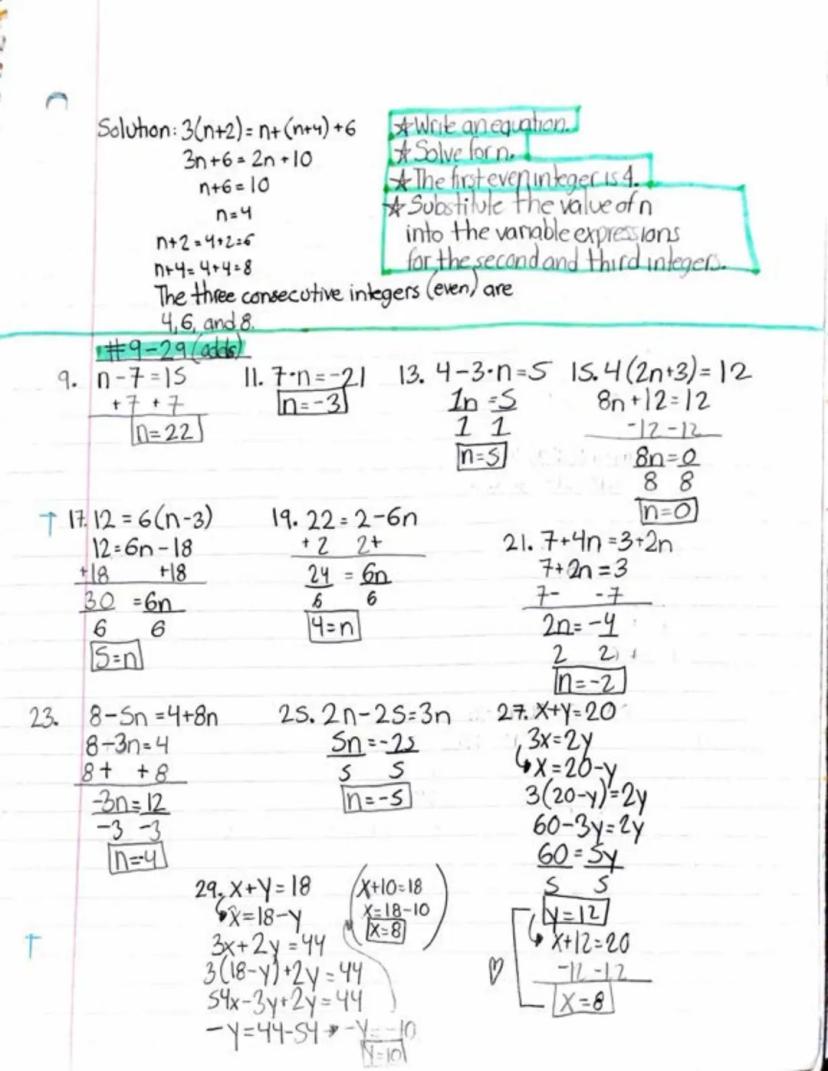 Solution: 3(n+2) = n+(n+4)+6
3n+6 = 2n+10
n+6=10
n=4
n+2=4+2=6
n+4=4+4=8
The three consecutive integers (even) are
4, 6, and 8.
★Write an equation.
★Solve for n.
★The first even integer is 4.
★Substitute the value of n
into the variable expressions
for the second and third integers.
#9-29 (odds)
9. n-7=15
+7 +7
n=22
11. 7·n=-21
n=-3
13. 4-3·n=5
1n=5
1 1
n=5
15. 4(2n+3)=12
8n+12=12
-12 -12
8n=0
8 8
n=0
17. 12=6(n-3)
12=6n-18
+18 +18
30 =6n
6 6
5=n
19. 22=2-6n
+2 2+
24 = 6n
6 6
4=n
21. 7+4n=3+2n
7+2n=3
7- -7
2n=-4
2 2
n=-2
23. 8-5n=4+8n
8-3n=4
8+ +8
-3n=12
-3 -3
n=-4
25. 2n-25=3n
5n=-25
5 5
n=-5
27. x+y=20
3x=2y
x=20-y
3(20-y)=2y
60-3y=2y
60=5y
5 5
y=12
x+12=20
-12 -12
x=8
29. x+y=18
x=18-y
3x+2y=44
3(18-y)+2y=44
54x-3y+2y=44
-y=44-54 → -y=-10
y=10
x+10=18
x=18-10
x=8